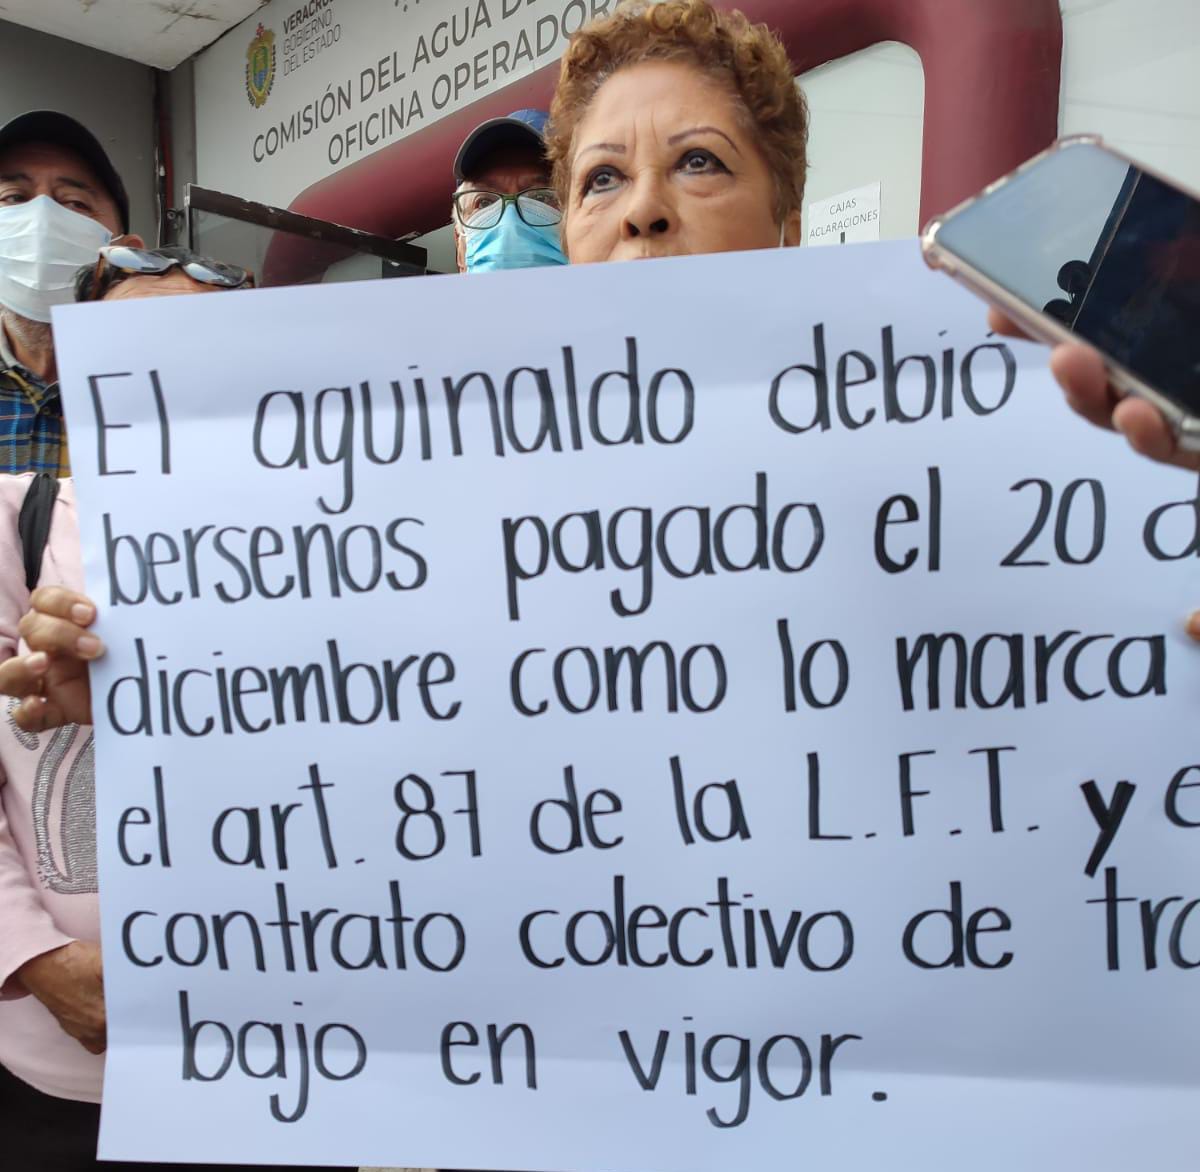 VERACRUZ
GOBIERNO
DEL ESTADO
COMISIÓN DEL AGUA DE
OFICINA OPERADORA
CAJAS
ACLARACIONES
El aguinaldo debió
bersenos pagado el 20 d
diciembre como lo marca
el art. 87 de la L.F.T. y e
contrato colectivo de tra
bajo en vigor.